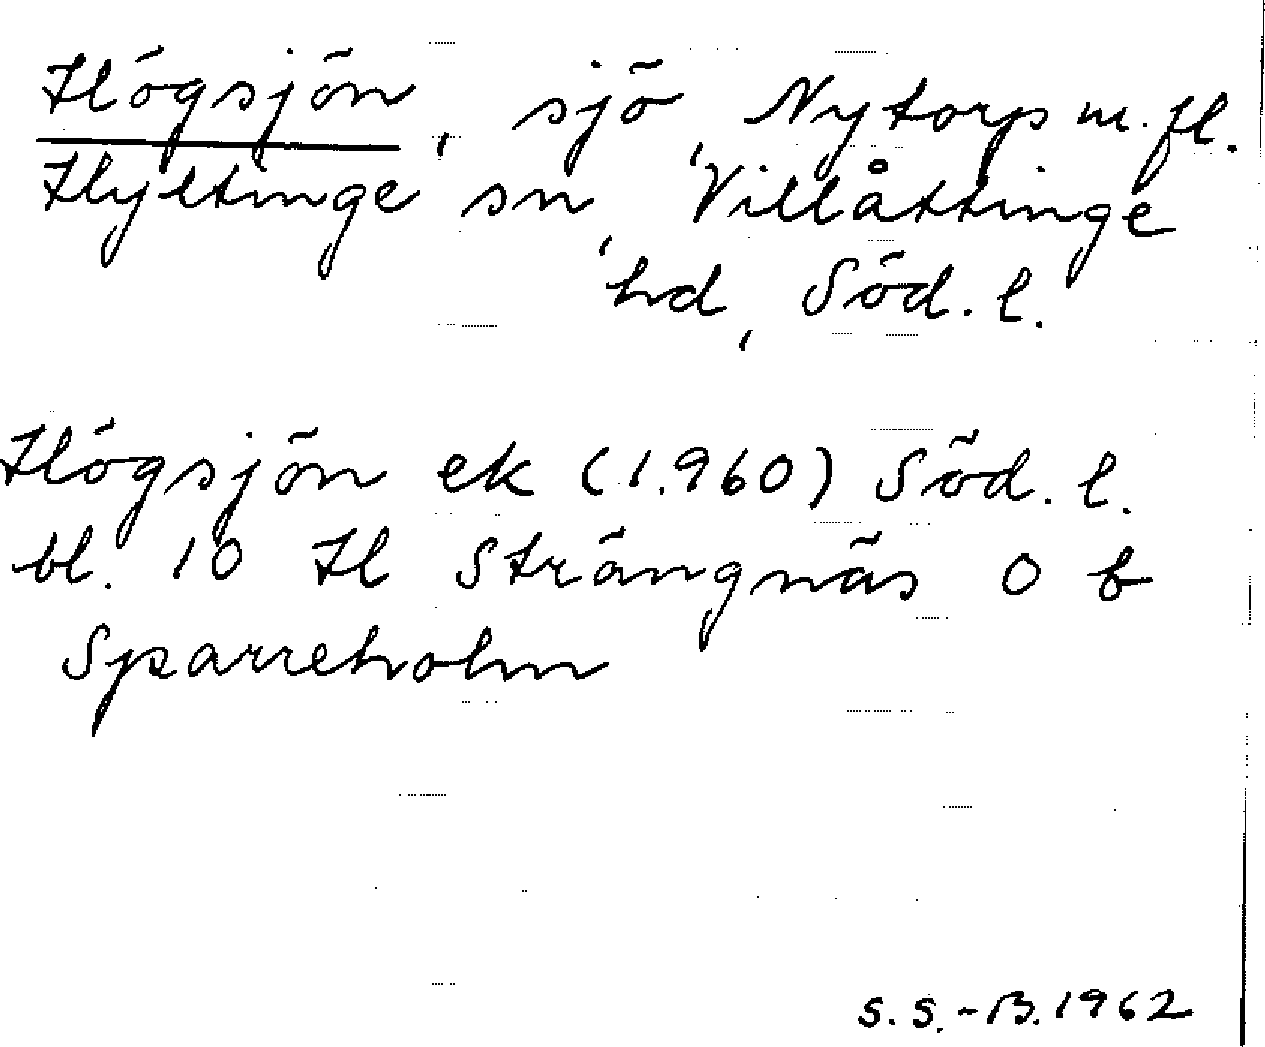 Högsjön, sjö, Nytorps m. fl.
Hyltinge sn, Villåttinge
hd, Söd. l.
Högsjön ek (1.960) Söd. l.
bl. 10 H Strängnäs O b
Sparreholm
S. S. - B. 1962